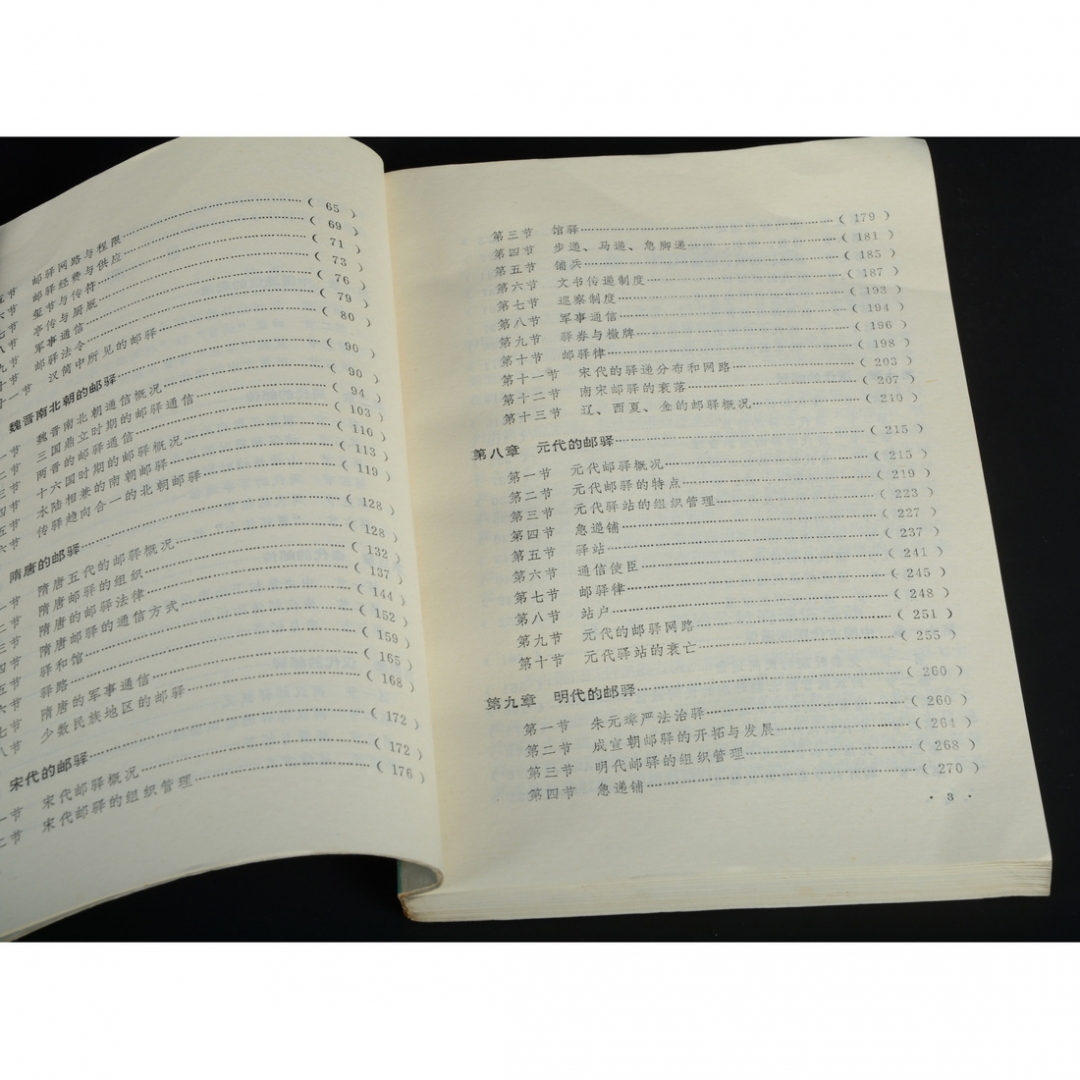 节 邮驿网路与程限……（ 65 ）
节 邮驿经费与供应……（ 69 ）
节 玺节与传符……（ 71 ）
节 亭传与厨厩……（ 73 ）
节 军事通信……（ 76 ）
节 邮驿法令……（ 79 ）
十一节 汉简中所见的邮驿……（ 80 ）
魏晋南北朝的邮驿……（ 90 ）
一节 魏晋南北朝通信概况……（ 90 ）
二节 三国鼎立时期的邮驿通信……（ 94 ）
三节 两晋的邮驿通信……（ 103 ）
四节 十六国时期的邮驿概况……（ 110 ）
五节 水陆相兼的南朝邮驿……（ 113 ）
六节 传驿趋向合一的北朝邮驿……（ 119 ）
隋唐的邮驿……（ 128 ）
一节 隋唐五代的邮驿概况……（ 128 ）
二节 隋唐邮驿的组织……（ 132 ）
三节 隋唐的邮驿法律……（ 137 ）
四节 隋唐邮驿的通信方式……（ 144 ）
五节 驿和馆……（ 152 ）
六节 驿路……（ 159 ）
七节 隋唐的军事通信……（ 165 ）
八节 少数民族地区的邮驿……（ 168 ）
宋代的邮驿……（ 172 ）
一节 宋代邮驿概况……（ 172 ）
二节 宋代邮驿的组织管理……（ 176 ）
第三节 馆驿……（ 179 ）
第四节 步递、马递、急脚递……（ 181 ）
第五节 铺兵……（ 185 ）
第六节 文书传递制度……（ 187 ）
第七节 巡察制度……（ 193 ）
第八节 军事通信……（ 194 ）
第九节 驿券与檄牌……（ 196 ）
第十节 邮驿律……（ 198 ）
第十一节 宋代的驿递分布和网路……（ 203 ）
第十二节 南宋邮驿的衰落……（ 207 ）
第十三节 辽、西夏、金的邮驿概况……（ 210 ）
第八章 元代的邮驿……（ 215 ）
第一节 元代邮驿概况……（ 215 ）
第二节 元代邮驿的特点……（ 219 ）
第三节 元代驿站的组织管理……（ 223 ）
第四节 急递铺……（ 227 ）
第五节 驿站……（ 237 ）
第六节 通信使臣……（ 241 ）
第七节 邮驿律……（ 245 ）
第八节 站户……（ 248 ）
第九节 元代的邮驿网路……（ 251 ）
第十节 元代驿站的衰亡……（ 255 ）
第九章 明代的邮驿……（ 260 ）
第一节 朱元璋严法治驿……（ 260 ）
第二节 成宣朝邮驿的开拓与发展……（ 264 ）
第三节 明代邮驿的组织管理……（ 268 ）
第四节 急递铺……（ 270 ）
· 3 ·